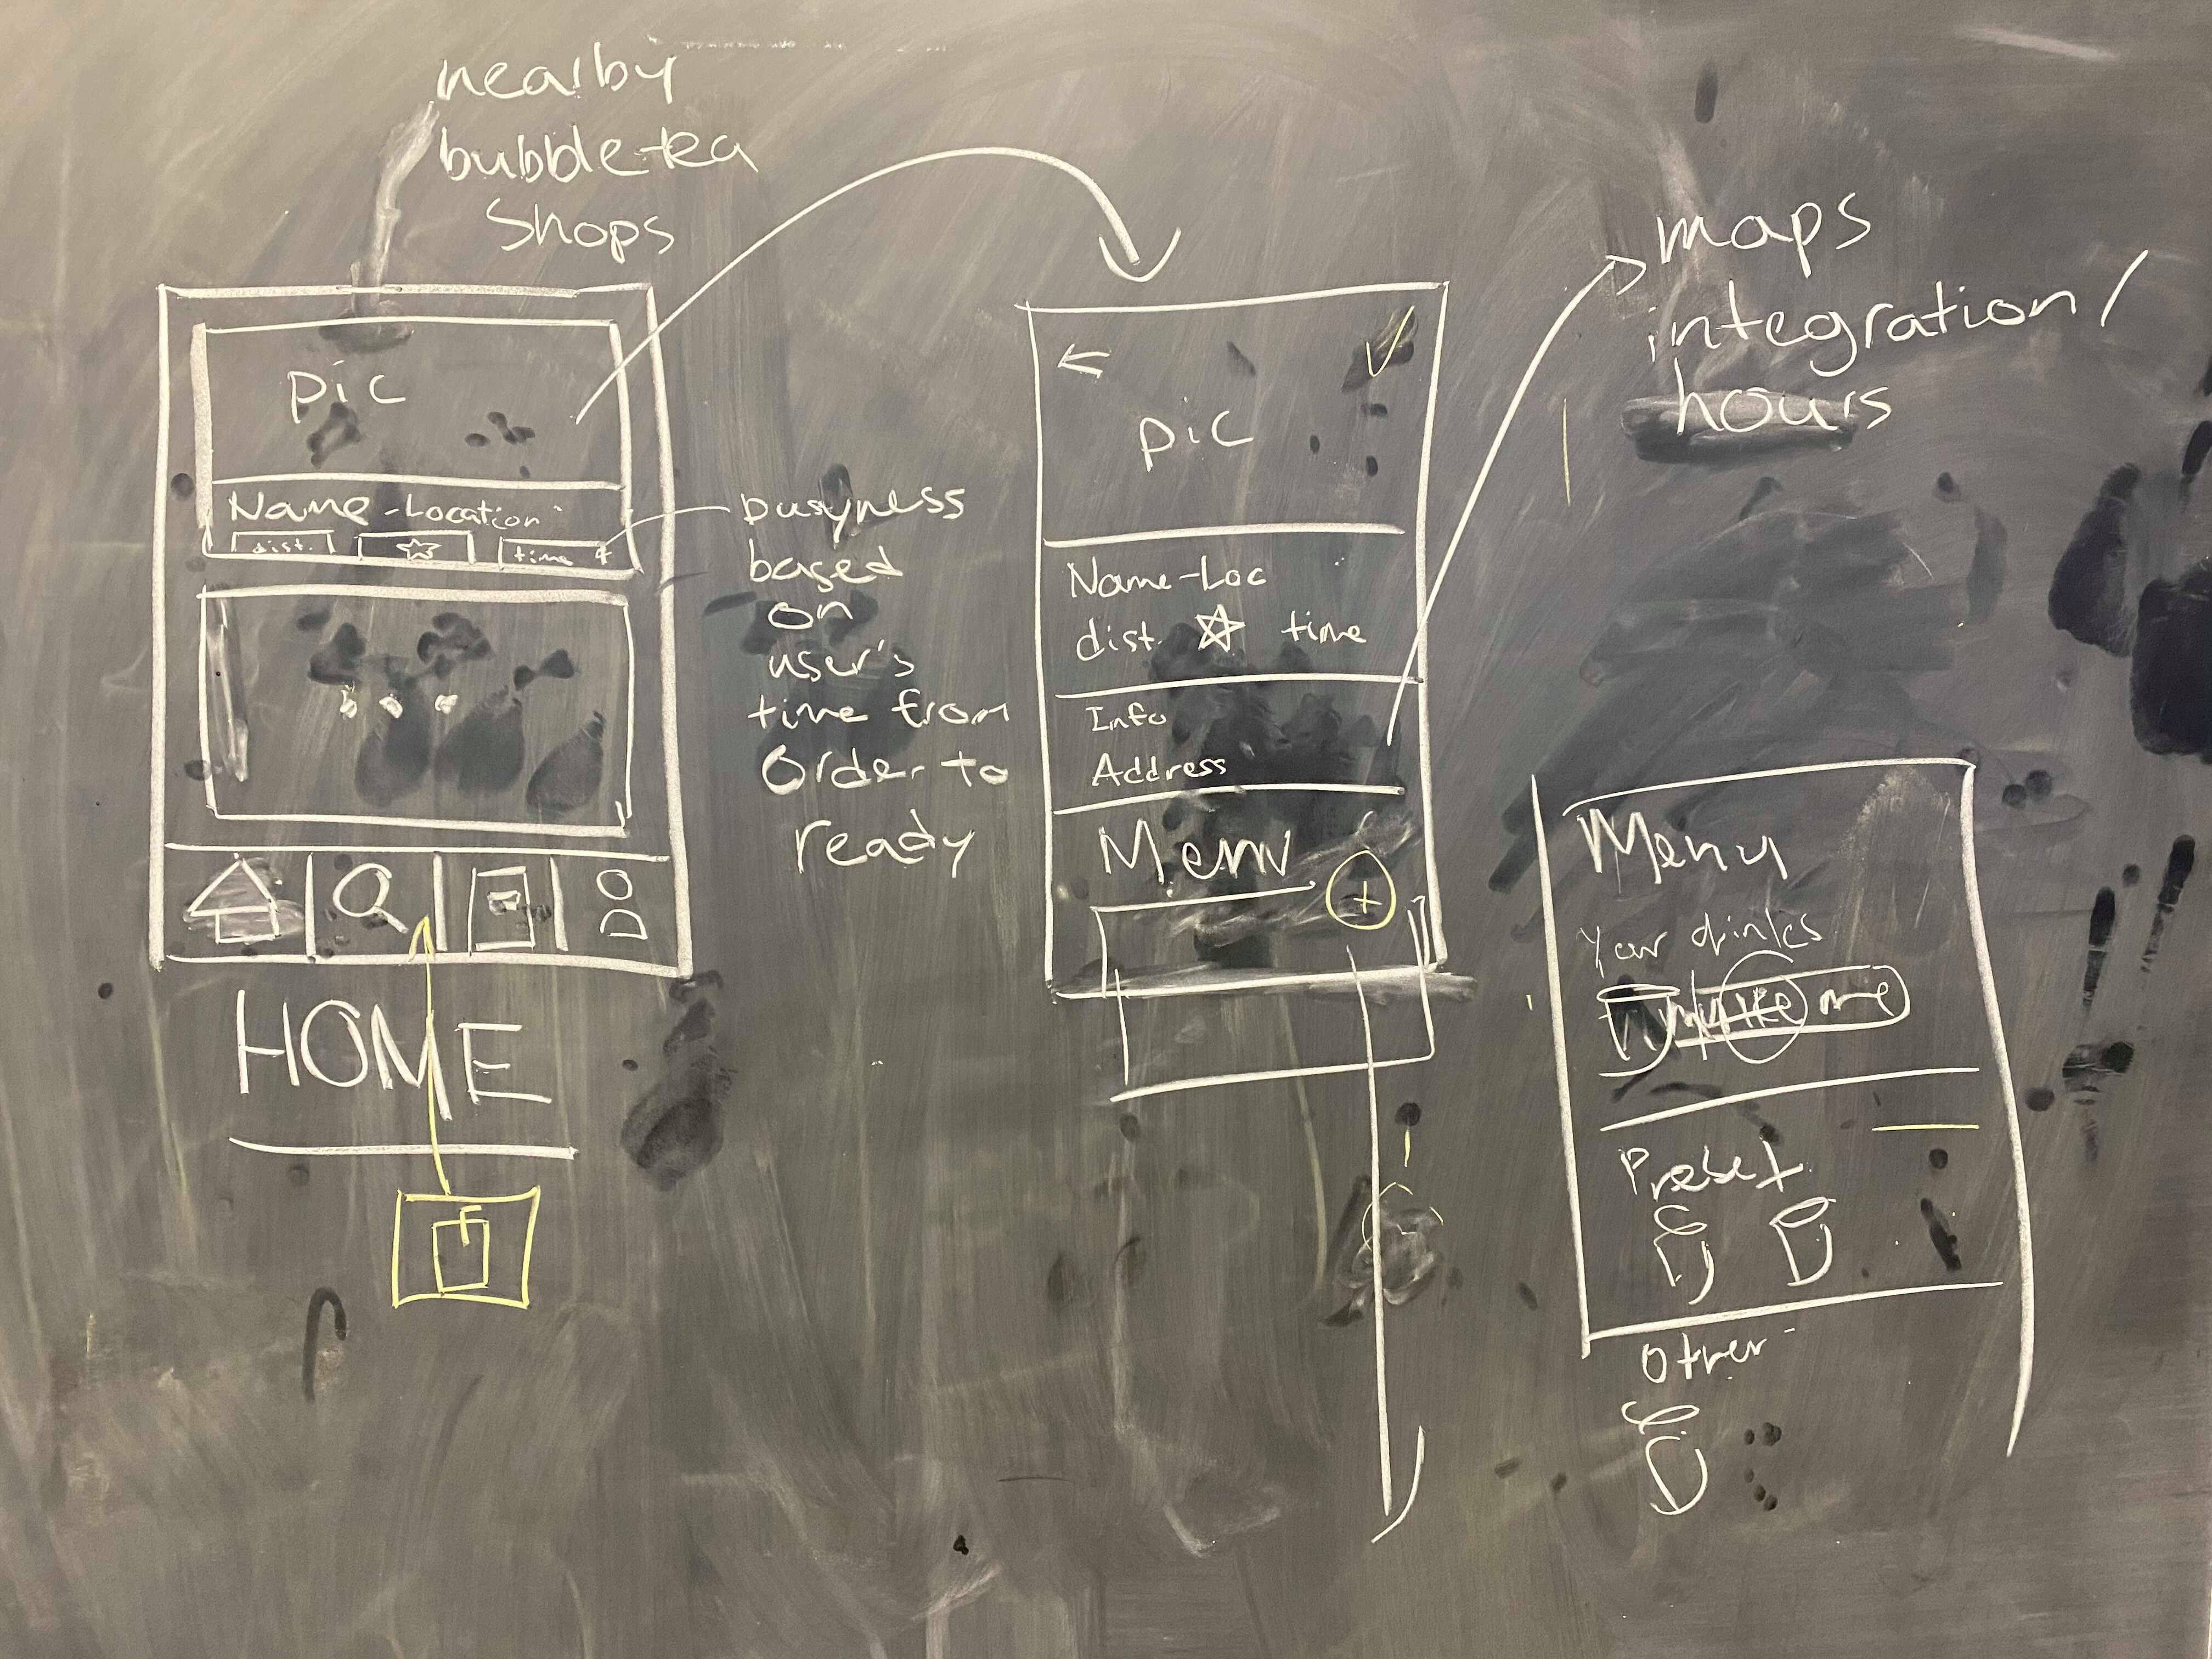 nearby
bubble tea
shops
pic
Name - Location
dist.
time
HOME
busyness
based
on
user's
time from
order to
ready
←
pic
Name - Loc
dist. ☆ time
Info
Address
Menu
+
maps
integration/
hours
Menu
Your drinks
me
Preset
Other